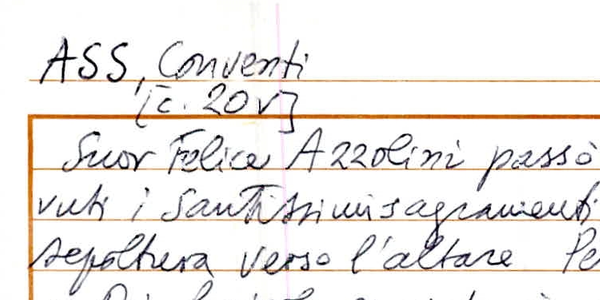 ASS, Conventi
[c. 20v]
Suor Felice Azzolini passò
vuti i Santissimi sagramenti
sepoltura verso l'altare